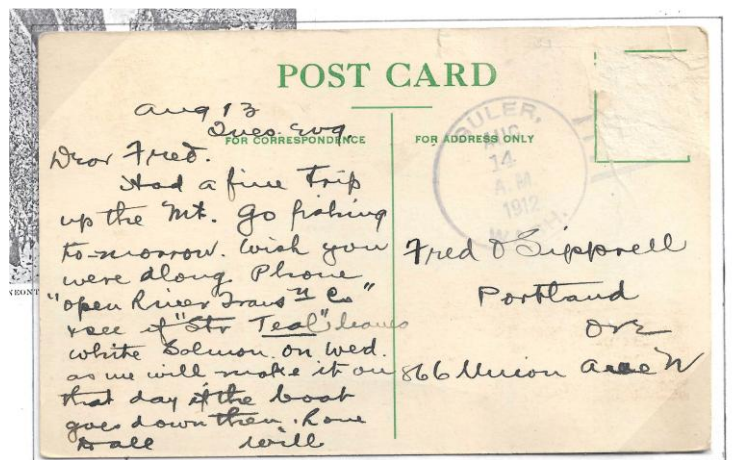 POST CARD
Aug 13
Tues. evg.
FOR CORRESPONDENCE
Dear Fred.
Had a fine trip
up the Mt. Go fishing
to-morrow. Wish you
were along Phone
"Open River Trans Co"
& see if "Str Teal" leaves
White Salmon on Wed.
as we will make it on
that day if the boat
goes down then. Love
to all Will
FOR ADDRESS ONLY
GULER,
AUG
14
A.M.
1912
WASH.
Fred O Sipprell
Portland
Ore
866 Union Ave N
NEONT